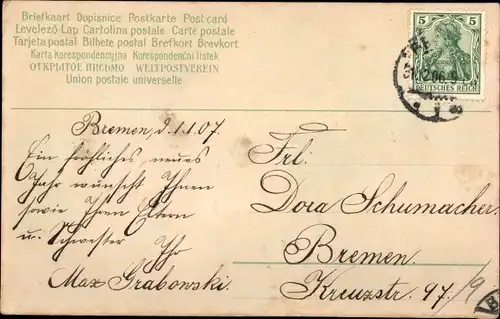 Briefkaart Dopisnice Postkarte Post card
Levelező-Lap Cartolina postale Carte postale
Tarjeta postal Bilhete postal Brefkort Brevkort
Karta korespondencyjna Korespondenční lístek
ОТКРЫТОЕ ПИСЬМО WELTPOSTVEREIN
Union postale universelle
5 5
DEUTSCHES REICH
BRE
31.12.06.9-
Bremen, d. 1.1.07.
Ein fröhliches neues
Jahr wünscht Ihnen
sowie Ihren Eltern
u. Schwester Ihr
Max Grabowski.
Frl:
Dora Schumacher
Bremen.
Kreuzstr. 97./9